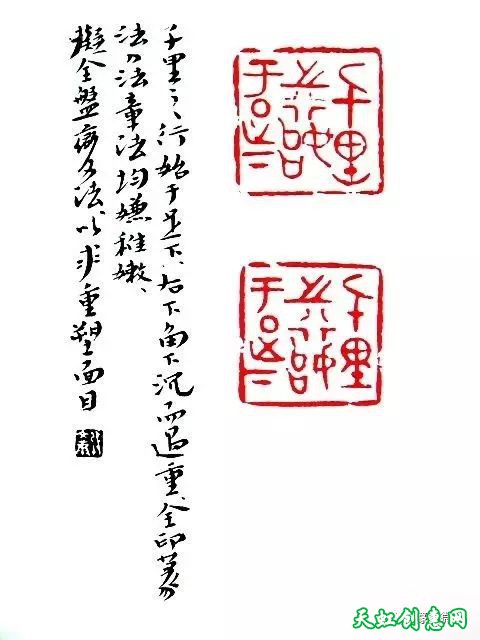 千里之行始于足下、右下角下沉而过重、全印篆
法刀法章法均嫌稚嫩、
拟全盘废弃法以求重塑面目
千里之行始于足下
千里之行始于足下
天虹创意网